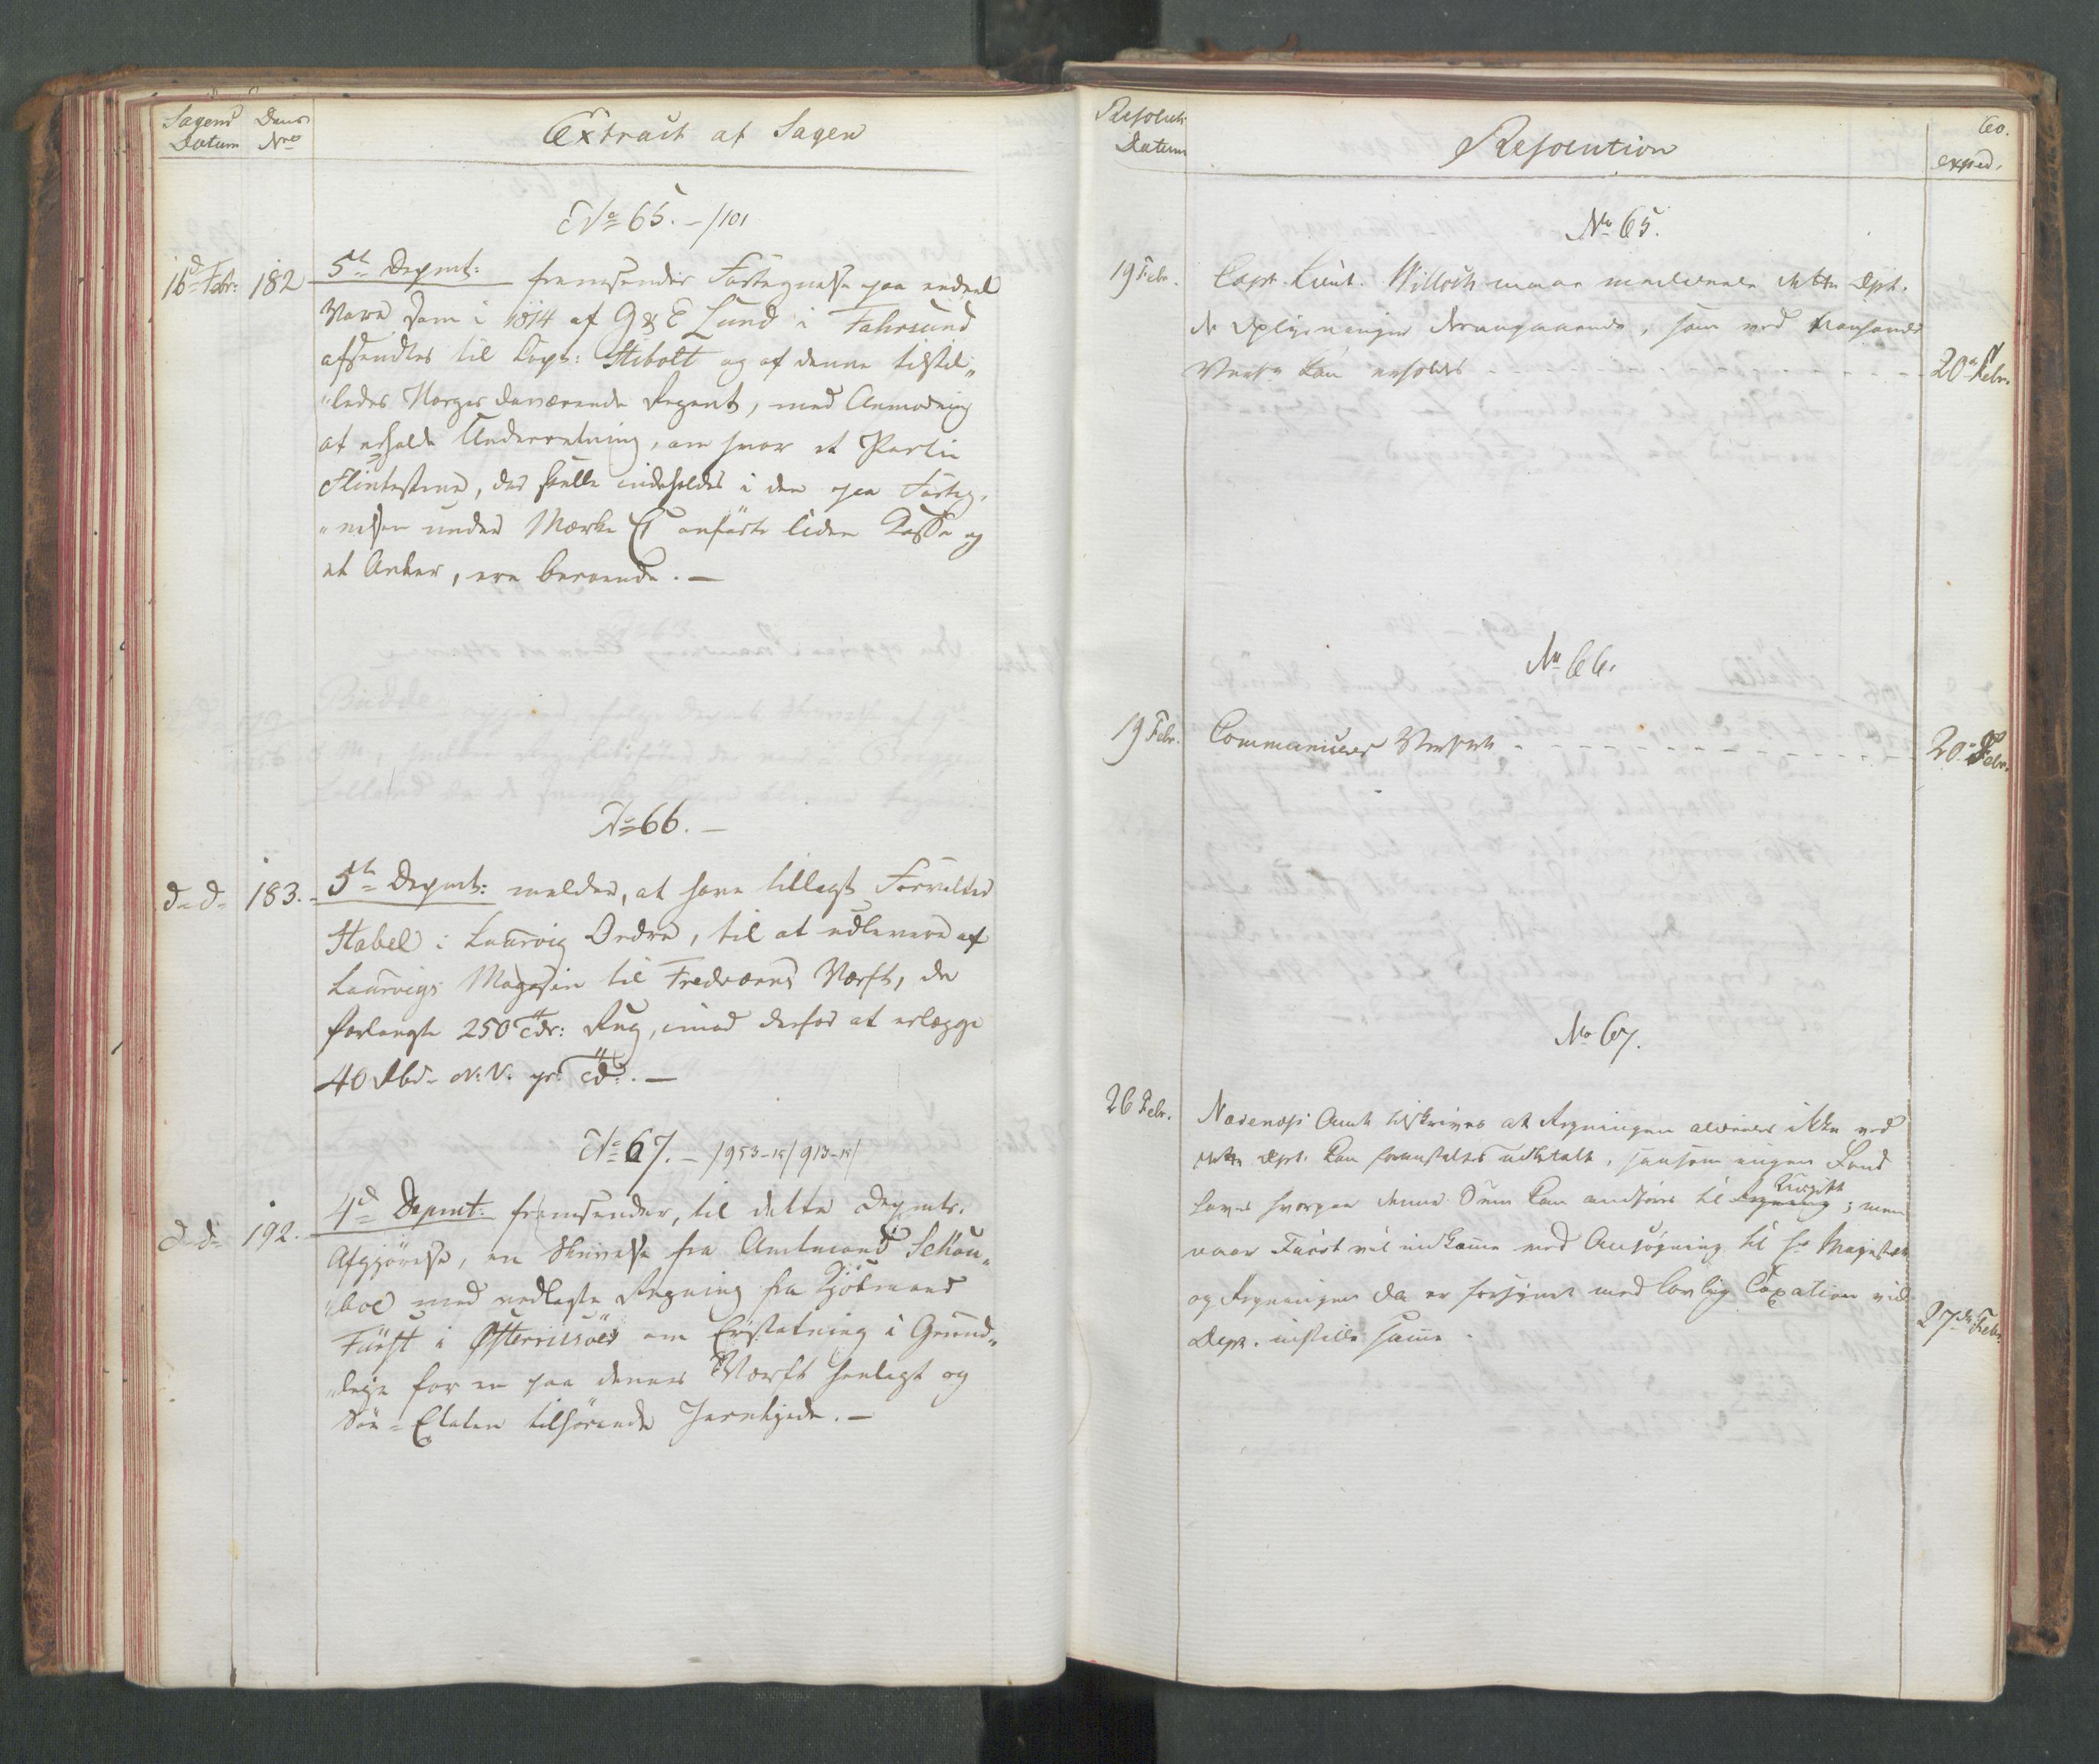 Sagens Datum
Dens Nro
Extract af Sagen
No 65. - /101
16d Febr: 182
5te Depmt: fremsender Fortegnelse paa endeel
Vare som i 1814 af G & E Lund i Fahrsund
afsendtes til Capt: Stibolt og af denne tilstil„
„ledes Norges daværende Regent, med Anmodning
at erholde Underretning, om hvor et Partie
Flintestene, der skulle indeholdes i den paa Forteg„
„nelsen under Mærke anførte liden Kasse og
et Anker, ere beroende. —
No 66. —
d– d– 183.
5te Depmt: melder, at have tillagt Forvalter
Stabel i Laurvig Ordre, til at udlevere af
Laurvigs Magasin til Fredværns Værft, de
forlangte 250 Tdr: Rug, imod derfor at erlægge
40 Rbd– N.V. pr: Td: . —
No 67. — /953–15/913–15/
d– d– 192.
4de Depmt: fremsender, til dette Depmts.
Afgjørelse, en Skrivelse fra Amtmand Schou„
„boe med vedlagte Regning fra Kjöbmand
Fürst i Østerriisøer om Erstatning i Grund„
„leje for en paa dennes Værft henlagt og
Söe-Etaten tilhørende Jernkjede. —
Resolut: Datum
Resolution
60.
exped.
No 65.
19 Febr.
Capt. Lieut. Willoch maae meddeele dette Dpt.
de Oplysninger derangaaende, som ved
Værft kan erholdes
20de Febr.
No 66.
19 Febr.
Communiceres Værftet
20de Febr.
No 67.
26 Febr.
Nædenæs Amt tilskrives at Regningen saaledes ikke ved
dette Dpt. kan foranstaltes udbetalt, saasom ingen Fond
haves hvorpaa denne Sum kan anvises til Udgift; men
naar Fürst vil indkomme med Ansøgning til Hs Majestæt
og Regningen da er forsynet med lovlig Taxation vil
Dept. indstille samme.
27de Febr.